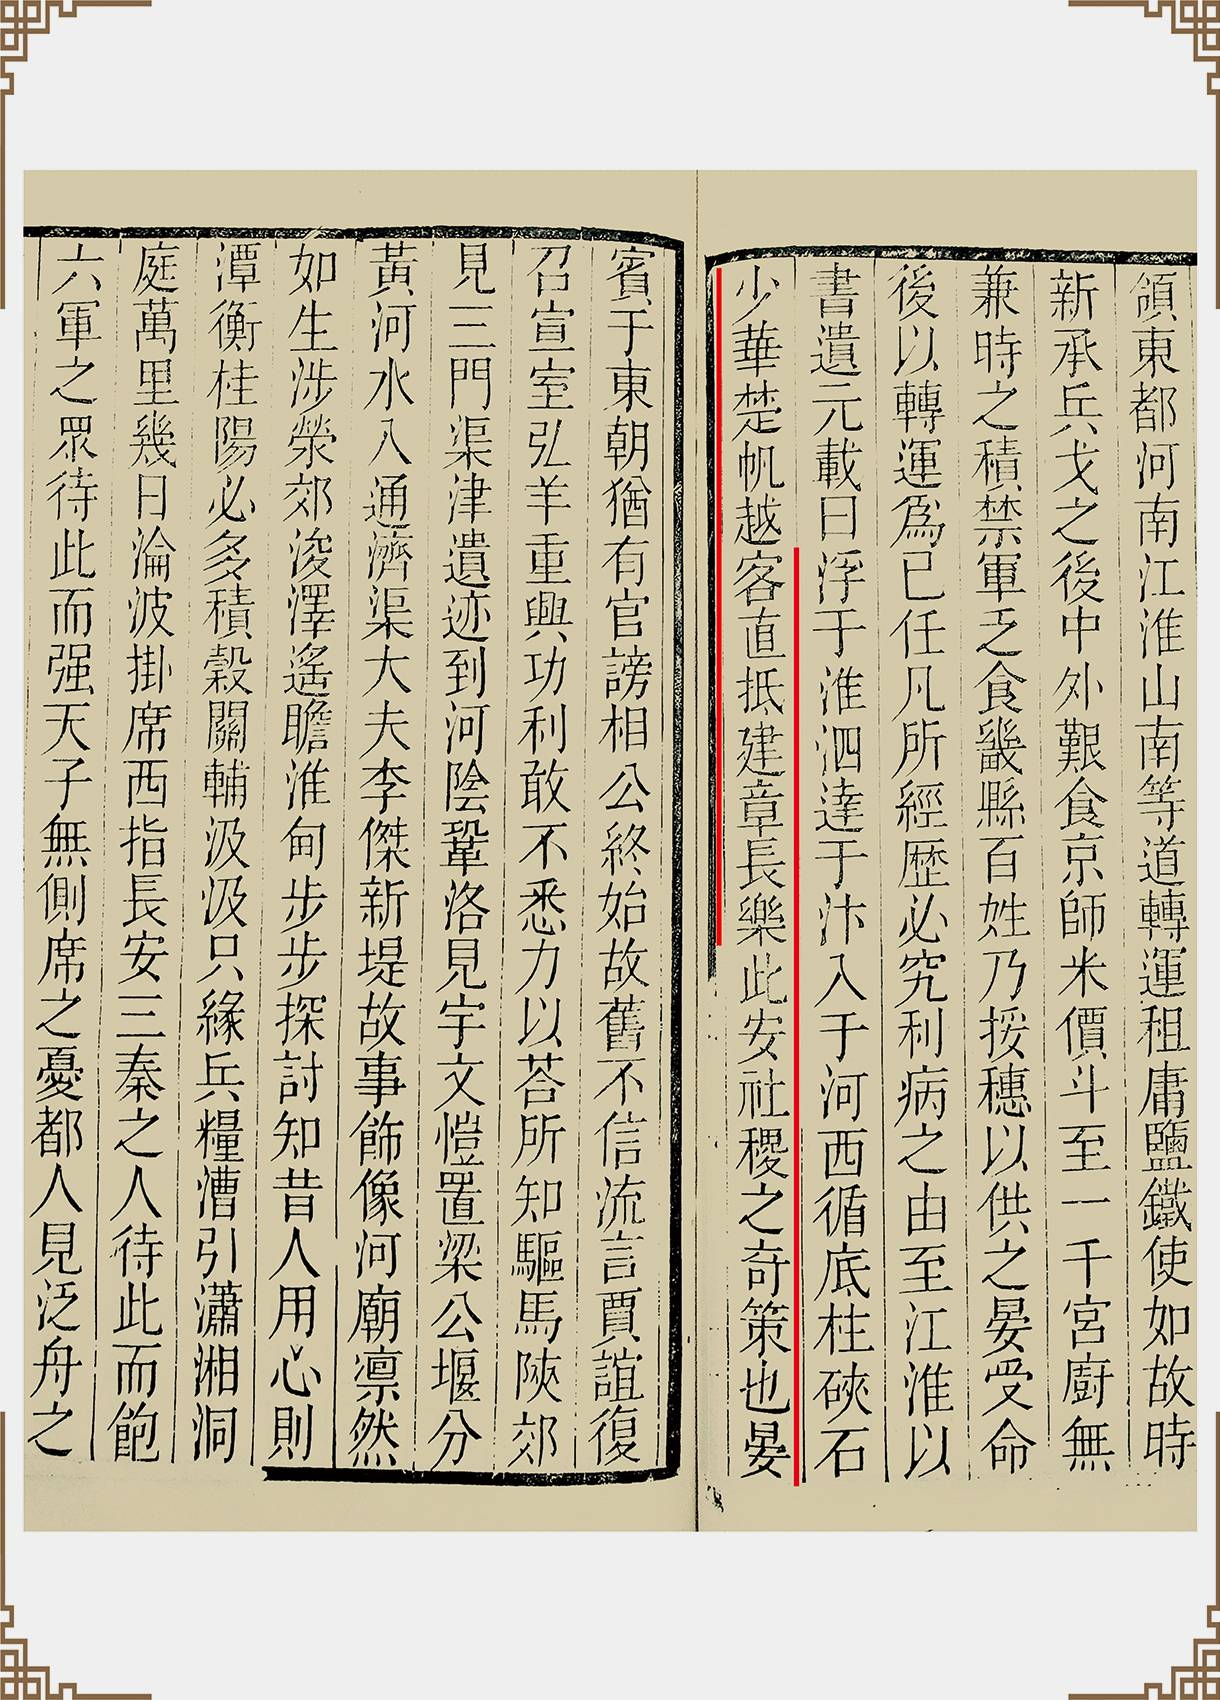 領東都河南江淮山南等道轉運租庸鹽鐵使如故時
新承兵戈之後中外艱食京師米價斗至一千宮廚無
兼時之積禁軍乏食畿縣百姓乃挼穗以供之晏受命
後以轉運爲已任凡所經歷必究利病之由至江淮以
書遺元載曰浮于淮泗達于汴入于河西循底柱硤石
少華楚帆越客直抵建章長樂此安社稷之奇策也晏
賓于東朝猶有官謗相公終始故舊不信流言賈誼復
召宣室弘羊重興功利敢不悉力以荅所知驅馬陝郊
見三門渠津遺迹到河陰鞏洛見宇文愷置梁公堰分
黃河水入通濟渠大夫李傑新堤故事飾像河廟凛然
如生涉滎郊浚澤遙瞻淮甸步步探討知昔人用心則
潭衡桂陽必多積穀關輔汲汲只緣兵糧漕引瀟湘洞
庭萬里幾日淪波掛席西指長安三秦之人待此而飽
六軍之眾待此而强天子無側席之憂都人見泛舟之